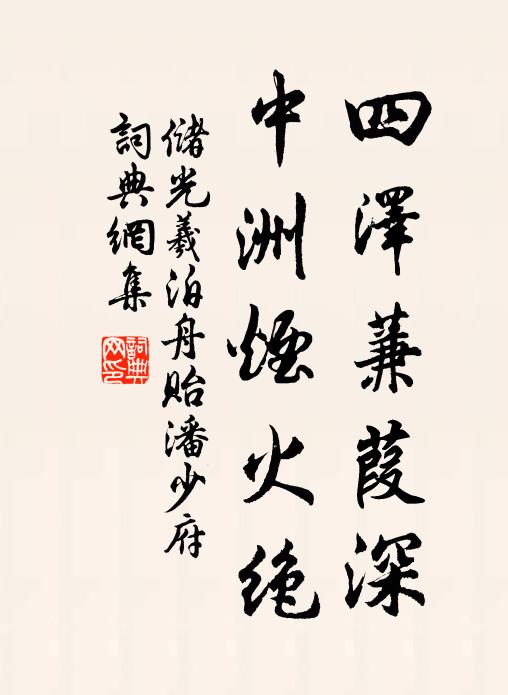 四澤蒹葭深
中洲煙火絶
儲光羲泊舟貽潘少府
詞典網集
詞典網印